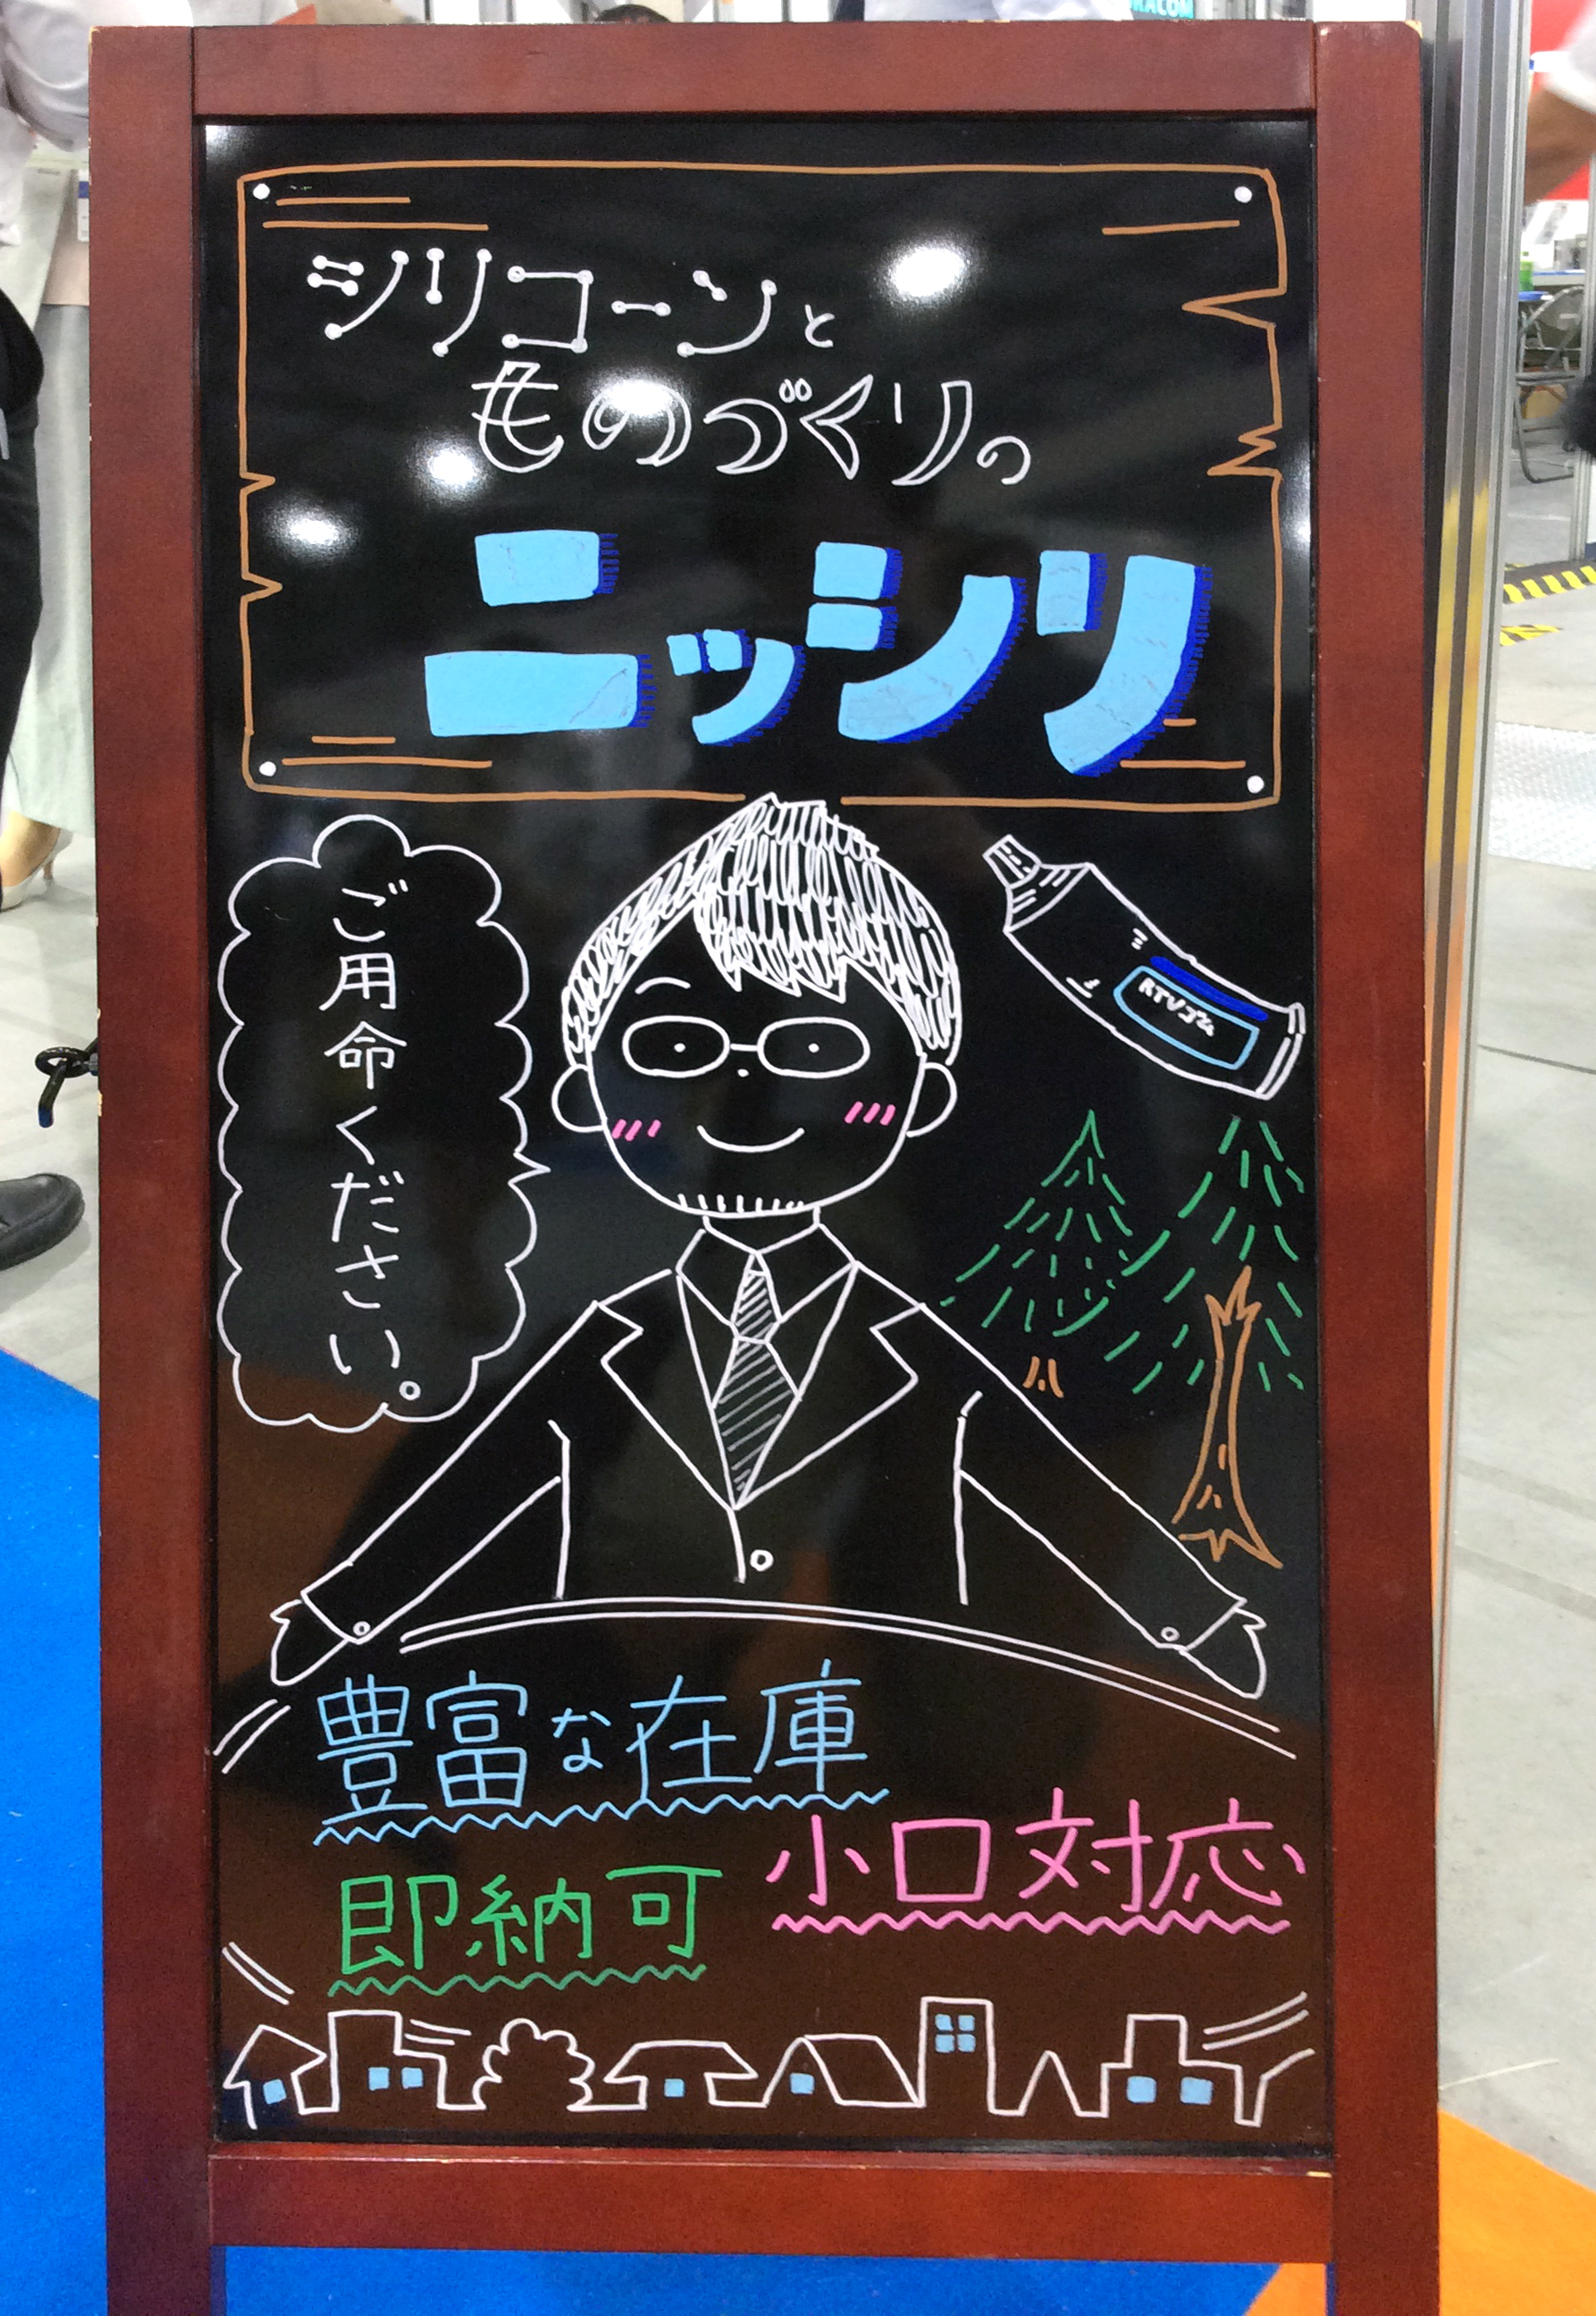 シリコーンと
ものづくりの
ニッシリ
ご用命ください。
RTVゴム
豊富な在庫
小口対応
即納可